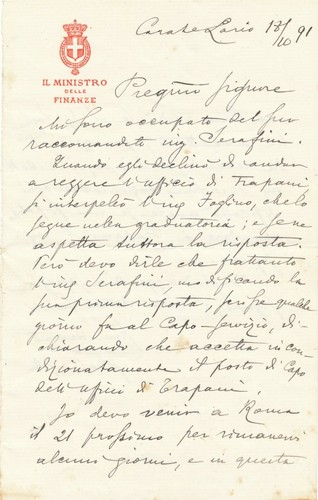 Carate Lario 18/10 91
IL MINISTRO
DELLE
FINANZE
Pregmo Signore
Mi sono occupato del suo
raccomandato ing. Serafini.
Quando egli declinò di andare
a reggere l'ufficio di Trapani
si interpellò l'ing. Foglino, che lo
segue nella graduatoria; e se ne
aspetta tuttora la risposta.
Però devo dirle che frattanto
l'ing Serafini, modificando la
sua prima risposta, scrisse qualche
giorno fa al Capo-servizio, di-
chiarando che accetta incon-
dizionatamente il posto di Capo
dell'Ufficio di Trapani.
Io devo venire a Roma
il 21 prossimo per rimanervi
alcuni giorni, e in questa